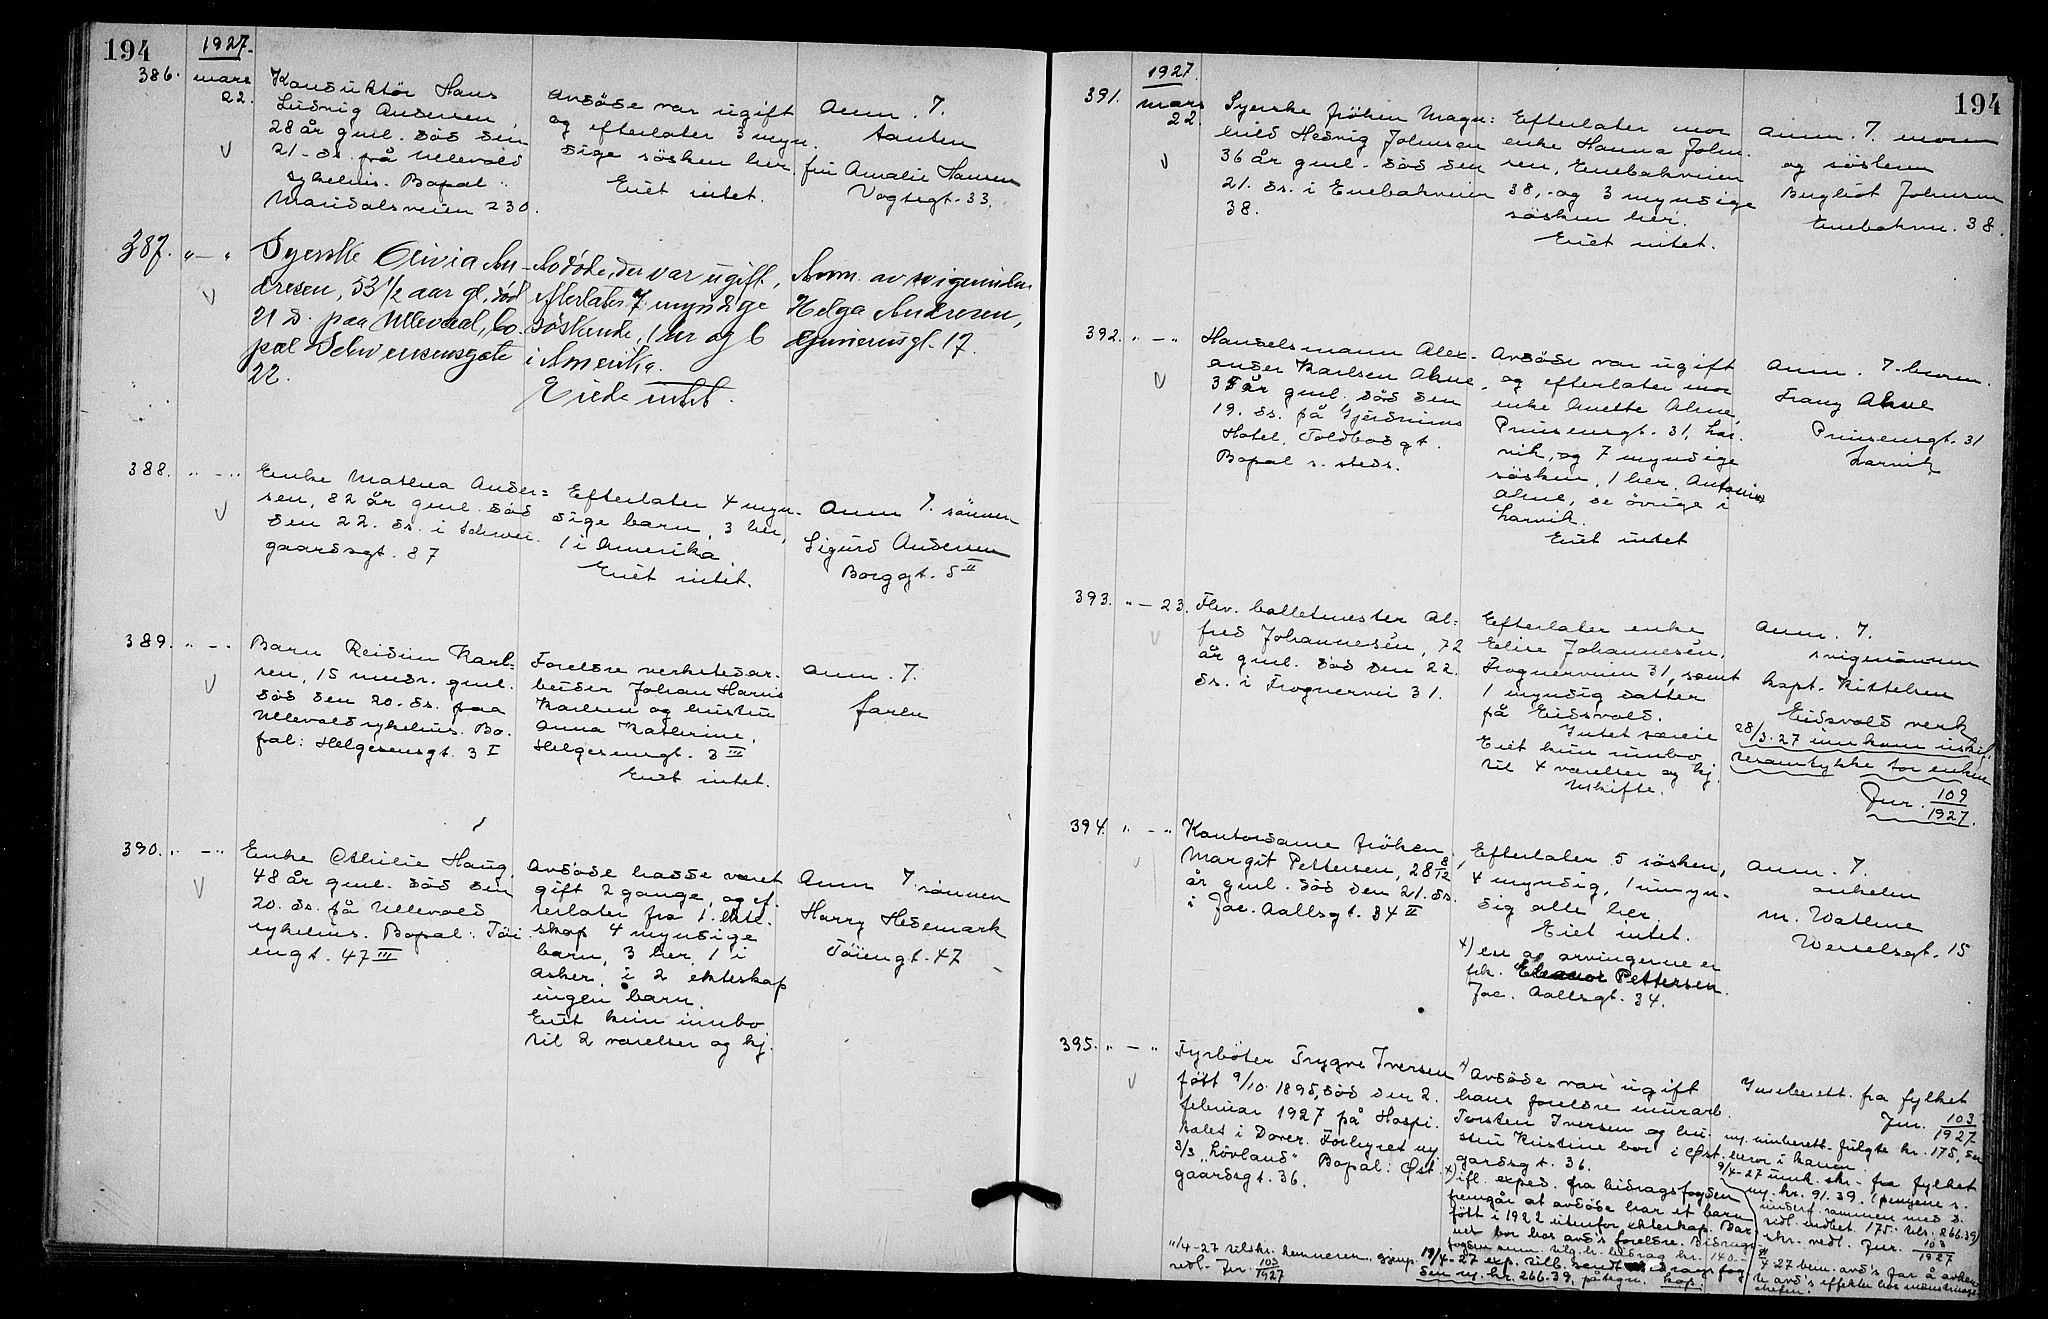 194
1927.
386. mars 22.
Konduktör Hans
Ludvig Andersen,
28 år gml. död den
21. ds. på Ullevold
sykehus. Bopæl:
Maridalsveien 230.
Avdöde var ugift
og efterlater 3 myn-
dige sösken her.
Eiet intet.
Anm. 7.
tanten
fru Amalie Hansen
Vogtsgt. 33.
387. " — "
Syerske Olivia An-
dresen, 53 1/2 aar gl. död
21 d. paa Ullevaal, bo-
pæl Schwensensgate
22.
Avdöde, der var ugift,
efterlater 7 myndige
söskende, 1 her og 6
i Amerika.
Eiede intet.
Anm. av svigerinden
Helga Andresen,
Gjøviksgt. 17.
388. " — "
Enke Mathea Ander=
sen, 82 år gml. död
den 22. ds. i Schwei-
gaardsgt. 87
Efterlater 4 myn-
dige barn, 3 her,
1 i Amerika
Eiet intet.
Anm. 7. sönnen
Sigurd Andersen
Borggt. 5 II
389. " — "
Barn Reidun Karl=
sen, 15 mndr. gml.
död den 20. ds. paa
Ullevold sykehus. Bo-
pæl: Helgesensgt. 3 I
Foreldre verkstedar-
beider Johan Harris
Karlsen og hustru
Anna Katherine,
Helgesensgt. 3 III
Eiet intet.
Anm. 7.
faren
390. " — "
Enke Othilie Haug,
48 år gml. död den
20. ds. på Ullevold
sykehus. Bopæl: Töi-
engt. 47 III
Avdöde hadde været
gift 2 gange, og ef-
terlater fra 1. ekte-
skap 4 myndige
barn, 3 her, 1 i
Asker, i 2 ekteskap
ingen barn.
Eiet kun innbo
til 2 værelser og kj.
Anm. 7. sönnen
Harry Hedemark
Töiengt. 47
194
1927.
391. mars 22.
Syerske fröken Magn=
hild Hedvig Johnsen
36 år gml. död den
21. ds. i Enebakveien
38.
Efterlater mor
enke Hanna John-
sen, Enebakveien
38, og 3 myndige
sösken her.
Eiet intet.
Anm. 7. moren
og sösteren
Bergliot Johnsen
Enebakvn. 38.
392. " — "
Handelsmann Alex-
ander Karlsen Ahne,
35 år gml. död den
19. ds. på Gjerdrums
Hotel, Toldbodgt.
Bopæl s. steds.
Avdöde var ugift
og efterlater mor
enke Anette Ahne,
Prinsensgt. 31, Lar-
vik, og 7 myndige
sösken, 1 her, Antonie
Ahne, de övrige i
Larvik.
Eiet intet
Anm. 7. broren
Franz Ahne
Prinsensgt. 31
Larvik
393. " — 23.
Fhv. balletmester Al=
fred Johannesén, 72
år gml. död den 22.
ds. i Frognervei 31.
Efterlater enke
Elise Johannesén,
Frognerveien 31, samt
1 myndig datter
på Eidsvold.
Intet særeie
Eiet kun innbo
til 4 værelser og kj.
Uskifte.
Anm. 7.
svigersönnen
kapt. Kittelsen
Eidsvold verk
28/3.27 innkom uskif-
tesamtykke for enken
Jur. 109/1927.
394. " — "
Kontordame fröken
Margit Pettersen, 28 8/12
år gml. död den 21. ds.
i Jac. Aallsgt. 34 II
Efterlater 5 sösken,
4 myndig, 1 umyn-
dig alle her.
Eiet intet.
x) en av arvingerne er
frk. Eleanor Pettersen.
Jac. Aallsgt. 34.
Anm. 7.
onkelen
M. Wathne
Wesselsgt. 15
395. " — "
Fyrböter Trygve Iversen
födt 9/10 1895, död den 2.
februar 1927 på Hospi-
talet i Dover. Forhyret ny
3/3 "Lövland" Bopæl: Öst-
gaardsgt. 36.
x) Avdöde var ugift
hans foreldre murarb.
Torsten Iversen og hu-
stru Kristine bor i Öst-
gardsgt. 36.
x) ifl. exped. fra bidragsfogden
fremgår at avdöde har et barn
födt i 1922 utenfor ekteskap. Bar-
net bor hos avd's foreldre. Bidrags-
fogden
Innberett. fra fylket
Jur. 103/1927
ny. innberett. fulgte kr. 175, den
beror i kassen.
9/4-27 innk. skr. fra fylket
ny. kr. 91.39. (pengene s.
sammen med d.
tidl. innbet. 175. tils. 266.39)
skr. vedl. Jur. 103/1927
4 27 bem. avd's far å avhen-
te avd's effekter hos mönstrings-
chefen.
11/4-27 tilskr. kemneren
vedl. Jur. 103/1927
19/4-27 exp. tilb. sendt
den ny. kr. 266.39, påtegn. kopi